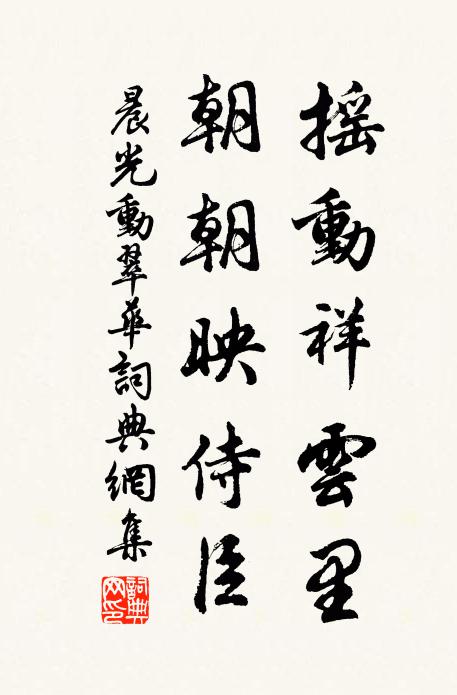 搖動祥雲里
朝朝映侍臣
晨光動翠華詞典網集
詞典網印